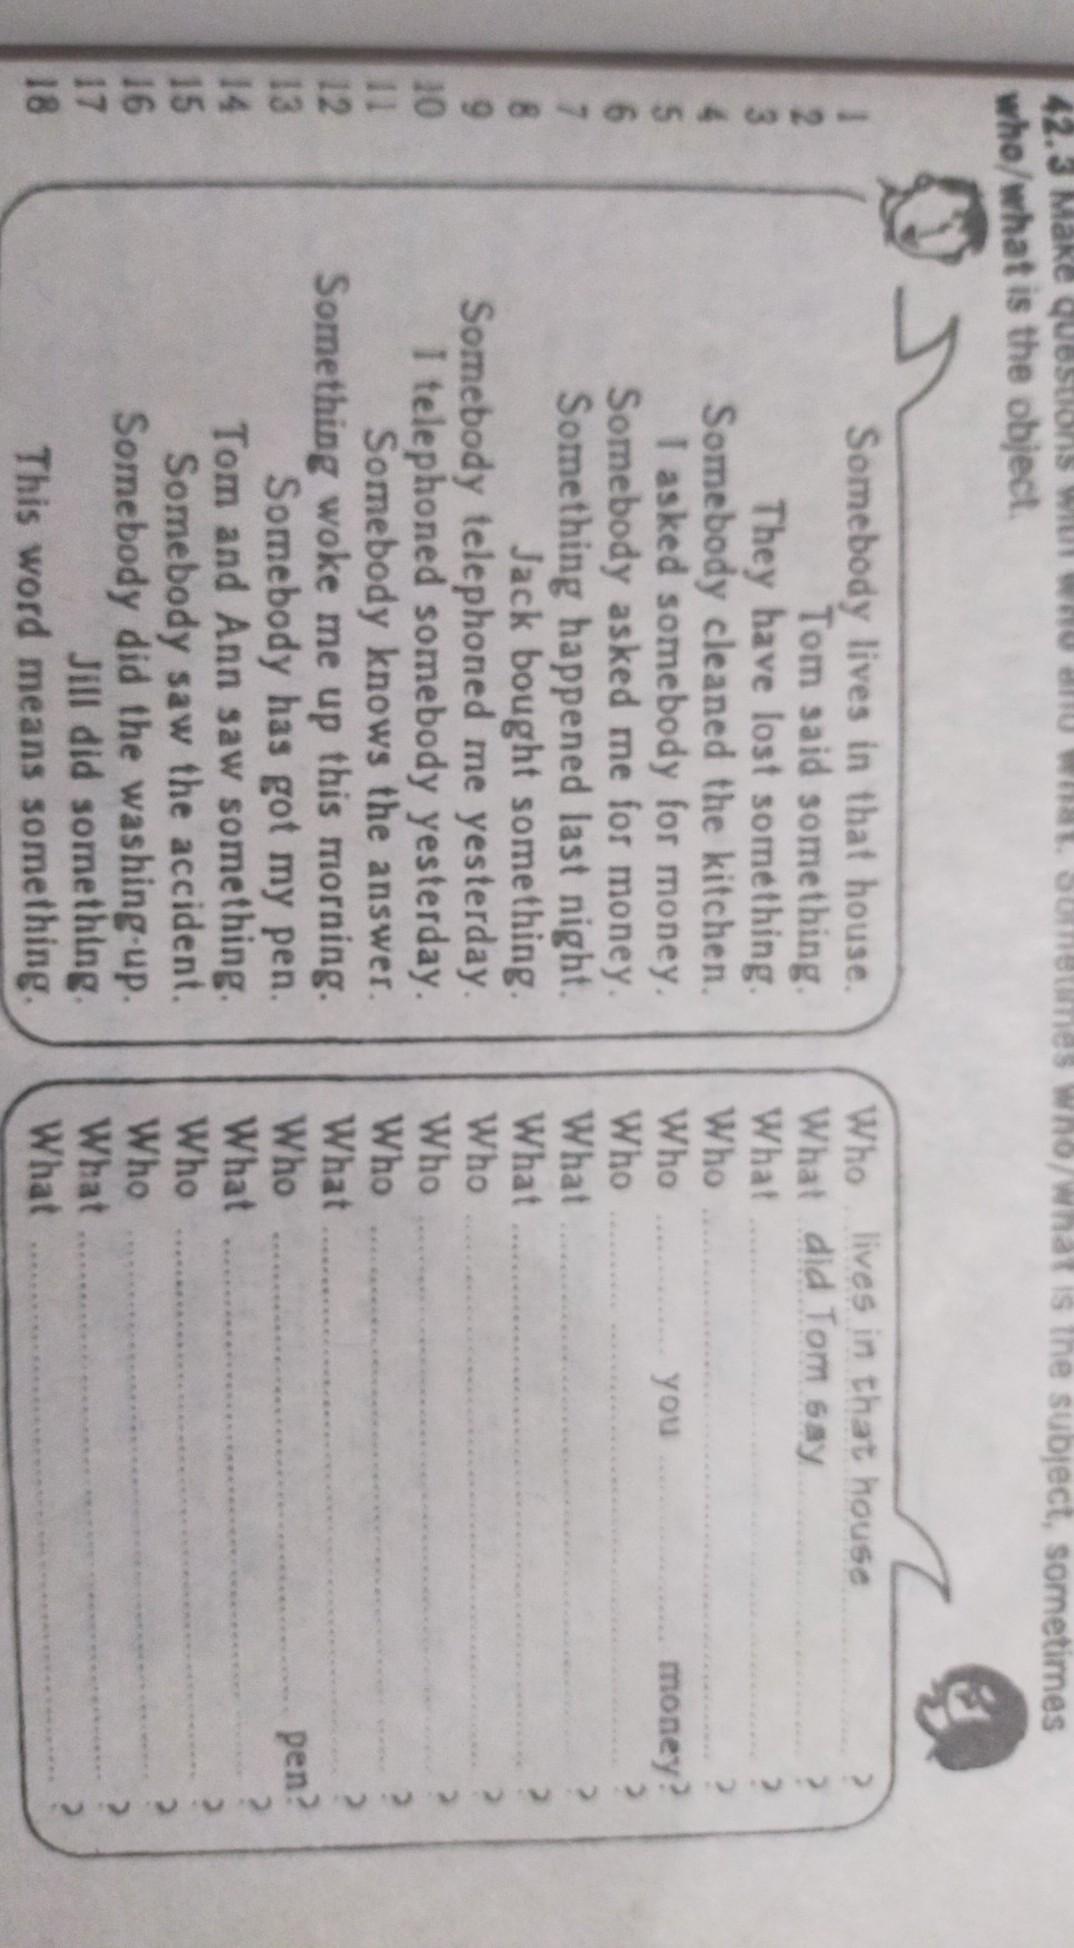 42.3 Make questions with who and what. Sometimes who/what is the subject, sometimes
who/what is the object.
1 Somebody lives in that house. Who lives in that house ?
2 Tom said something. What did Tom say ?
3 They have lost something. What ?
4 Somebody cleaned the kitchen. Who ?
5 I asked somebody for money. Who you money?
6 Somebody asked me for money. Who ?
7 Something happened last night. What ?
8 Jack bought something. What ?
9 Somebody telephoned me yesterday. Who ?
10 I telephoned somebody yesterday. Who ?
11 Somebody knows the answer. Who ?
12 Something woke me up this morning. What ?
13 Somebody has got my pen. Who pen?
14 Tom and Ann saw something. What ?
15 Somebody saw the accident. Who ?
16 Somebody did the washing-up. Who ?
17 Jill did something. What ?
18 This word means something. What ?